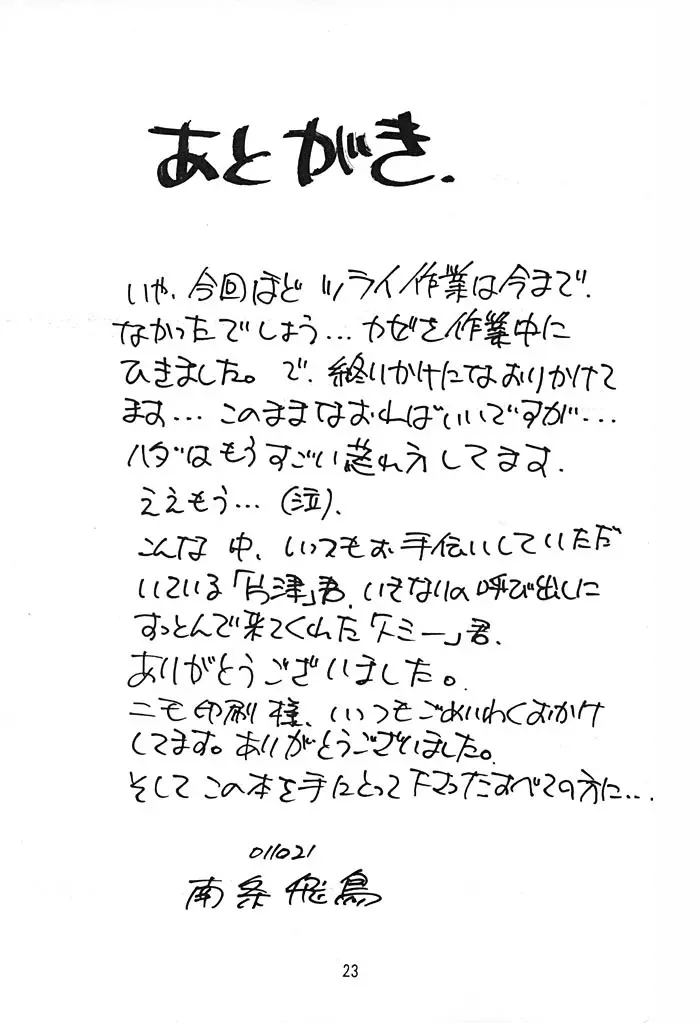 あとがき.
いや、今回ほど ツライ作業は今まで、
なかったでしょう… カゼを作業中に
ひきました。で、終りかけになおりかけて
ます… このままなおればいいですが…
ハダはもうすごい荒れ方してます.
ええもう…(泣).
こんな中、いつもお手伝いしていただ
いている「片津」君、いきなりの呼び出しに
すっとんで来てくれた「クミー」君、
ありがとうございました。
ニモ印刷様、いつもごめいわくおかけ
してます。ありがとうございました。
そして この本を手にとって下さったすべての方に….
011021
南条飛鳥
23